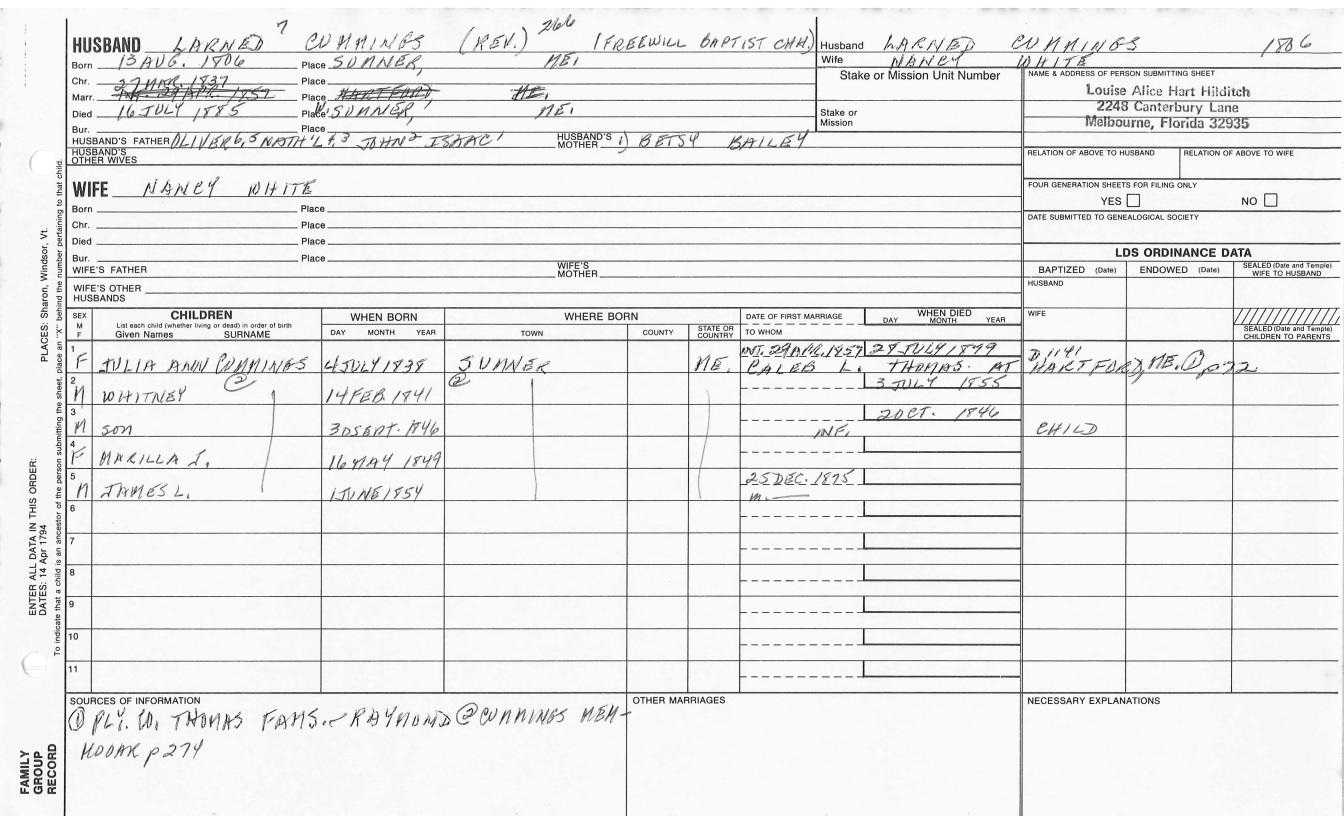 HUSBAND LARNED 7 CUMMINGS (REV.) 266 (FREEWILL BAPTIST CHH.)
Born 13 AUG. 1806 Place SUMNER, ME.
Chr. 27 MAR. 1837 Place
Marr. INT. 29 APR. 1857 Place HARTFORD ME.
Died 16 JULY 1885 Place W. SUMNER, ME.
Bur. Place
HUSBAND'S FATHER OLIVER 6, 5 NATH'L 4, 3 JOHN 2 ISAAC 1 HUSBAND'S MOTHER 1) BETSY BAILEY
HUSBAND'S OTHER WIVES
WIFE NANCY WHITE
Born Place
Chr. Place
Died Place
Bur. Place
WIFE'S FATHER WIFE'S MOTHER
WIFE'S OTHER HUSBANDS
Husband LARNED CUMMINGS 1806
Wife NANCY WHITE
Stake or Mission Unit Number
Stake or Mission
NAME & ADDRESS OF PERSON SUBMITTING SHEET
Louise Alice Hart Hilditch
2248 Canterbury Lane
Melbourne, Florida 32935
RELATION OF ABOVE TO HUSBAND RELATION OF ABOVE TO WIFE
FOUR GENERATION SHEETS FOR FILING ONLY
YES NO
DATE SUBMITTED TO GENEALOGICAL SOCIETY
LDS ORDINANCE DATA
BAPTIZED (Date) ENDOWED (Date) SEALED (Date and Temple) WIFE TO HUSBAND
HUSBAND
WIFE
SEALED (Date and Temple) CHILDREN TO PARENTS
SEX M F CHILDREN WHEN BORN WHERE BORN DATE OF FIRST MARRIAGE WHEN DIED
List each child (whether living or dead) in order of birth
Given Names SURNAME DAY MONTH YEAR TOWN COUNTY STATE OR COUNTRY TO WHOM DAY MONTH YEAR
1 INT. 29 APR. 1857 27 JULY 1899 D 1141
F JULIA ANN CUMMINGS 4 JULY 1838 SUMNER ME. CALEB L. THOMAS. AT HARTFORD, ME. ① p72
2 ② ② 3 JULY 1855
M WHITNEY 14 FEB. 1841
3 2 OCT. 1846
M SON 30 SEPT. 1846 INF. CHILD
4
F MARILLA J. 16 MAY 1849
5 25 DEC. 1875
M JAMES L. 1 JUNE 1854 m.
6
7
8
9
10
11
SOURCES OF INFORMATION
① PLY. CO. THOMAS FAMS. - RAYMOND ② CUMMINGS MEM - MOOAR p 274
OTHER MARRIAGES
NECESSARY EXPLANATIONS
FAMILY GROUP RECORD
ENTER ALL DATA IN THIS ORDER:
DATES: 14 Apr 1794
PLACES: Sharon, Windsor, Vt.
To indicate that a child is an ancestor of the person submitting the sheet, place an "X" behind the number pertaining to that child.